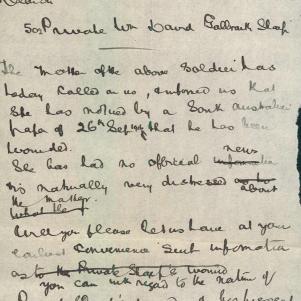 503 Private Wm David Galbraith Sharp
The Mother of the above Soldier has
today called on us, & informed us that
She has noticed by a South Australian
paper of 26th Sept that he has been
wounded.
She has had no official news informatio
is naturally very distressed as to about
the matter.
What the
Will you please let us have at your
earliest convenience such information
as to the Private Sharp's wound
you can with regard to the nature of